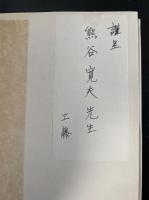 謹呈
熊谷寛夫先生
工藤